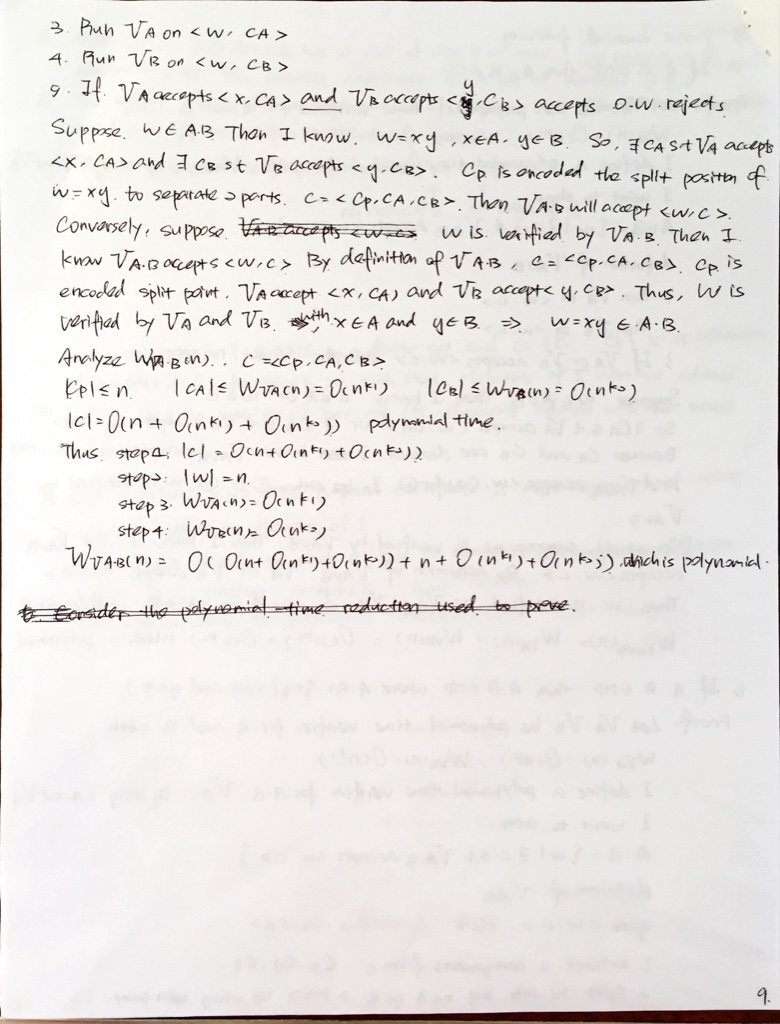 3. Run VA on <W, CA>
4. Run VB on <W, CB>
5. If VA accepts <x, CA> and VB accepts <y, CB> accepts O.W. rejects
Suppose. W∈A·B Then I know. W=xy, x∈A. y∈B. So, ∃CA s.t VA accepts
<x, CA> and ∃ CB s.t VB accepts <y, CB>. Cp is encoded the split position of
W=xy. to separate 2 parts. C=<Cp, CA, CB>. Then VA·B will accept <W, C>.
Conversely, suppose VA·B accepts <W, C> W is verified by VA·B. Then I
know VA·B accepts <W, C> By definition of VA·B, C=<Cp, CA, CB>. Cp is
encoded split point. VA accept <x, CA> and VB accept <y, CB>. Thus, W is
verified by VA and VB. with x∈A and y∈B. ⇒ W=xy ∈ A·B.
Analyze WVA·B(n).. C=<Cp, CA, CB>
|Cp|≤n. |CA|≤WVA(n)=O(nk1) |CB|≤WVB(n)=O(nk2)
|C|=O(n+O(nk1)+O(nk2)) polynomial time.
Thus. step1. |C|=O(n+O(nk1)+O(nk2))
step2: |W|=n.
step 3. WVA(n)=O(nk1)
step4: WVB(n)=O(nk2)
WVA·B(n)= O(O(n+O(nk1)+O(nk2))+n+O(nk1)+O(nk2)), which is polynomial.
6. Consider the polynomial-time reduction used to prove.
9.